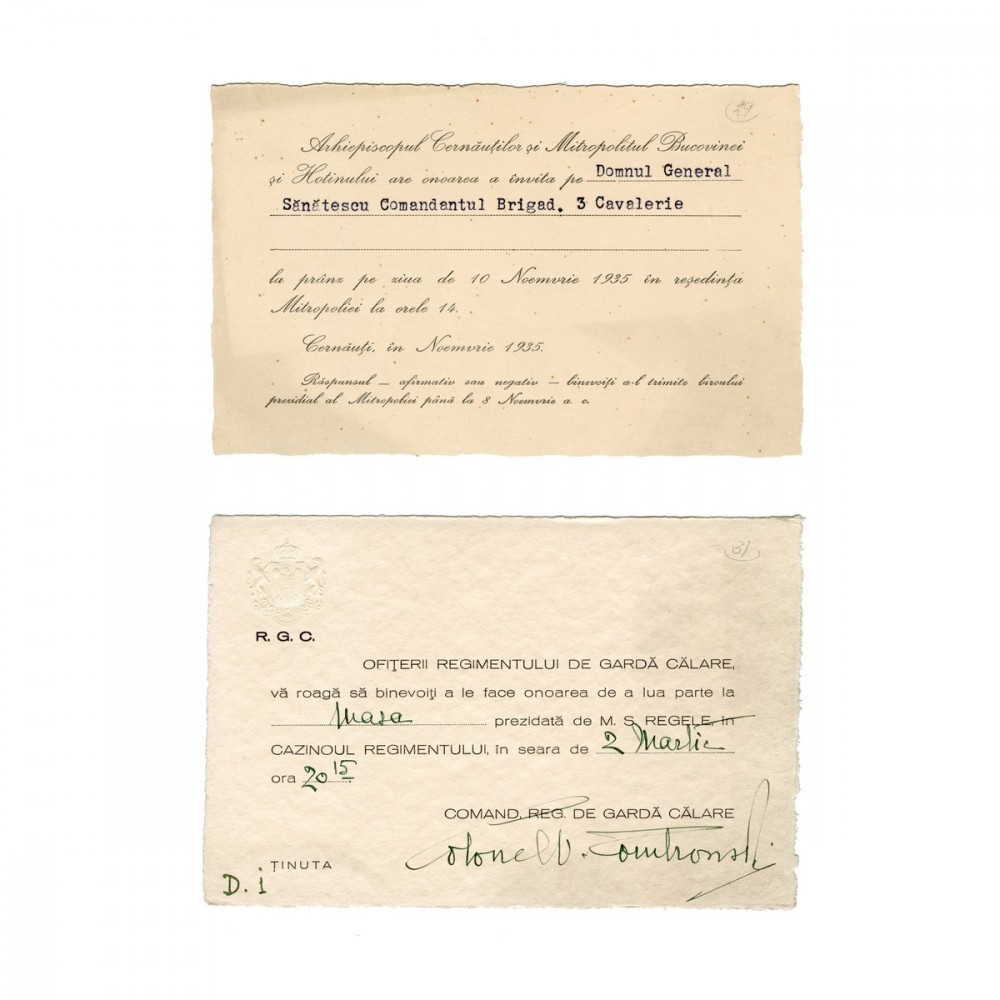 29
Arhiepiscopul Cernăuților și Mitropolitul Bucovinei
și Hotinului are onoarea a invita pe Domnul General
Sănătescu Comandantul Brigad. 3 Cavalerie
la prânz pe ziua de 10 Noemvrie 1935 în reședința
Mitropoliei la orele 14.
Cernăuți, în Noemvrie 1935.
Răspunsul — afirmativ sau negativ — binevoiți a-l trimite biroului
prezidial al Mitropoliei până la 8 Noemvrie a. c.
31
R. G. C.
OFIȚERII REGIMENTULUI DE GARDĂ CĂLARE,
vă roagă să binevoiți a le face onoarea de a lua parte la
Masa prezidată de M. S. REGELE, în
CAZINOUL REGIMENTULUI, în seara de 2 Martie
ora 20 15
COMAND. REG. DE GARDĂ CĂLARE
Colonel
ȚINUTA
D. i